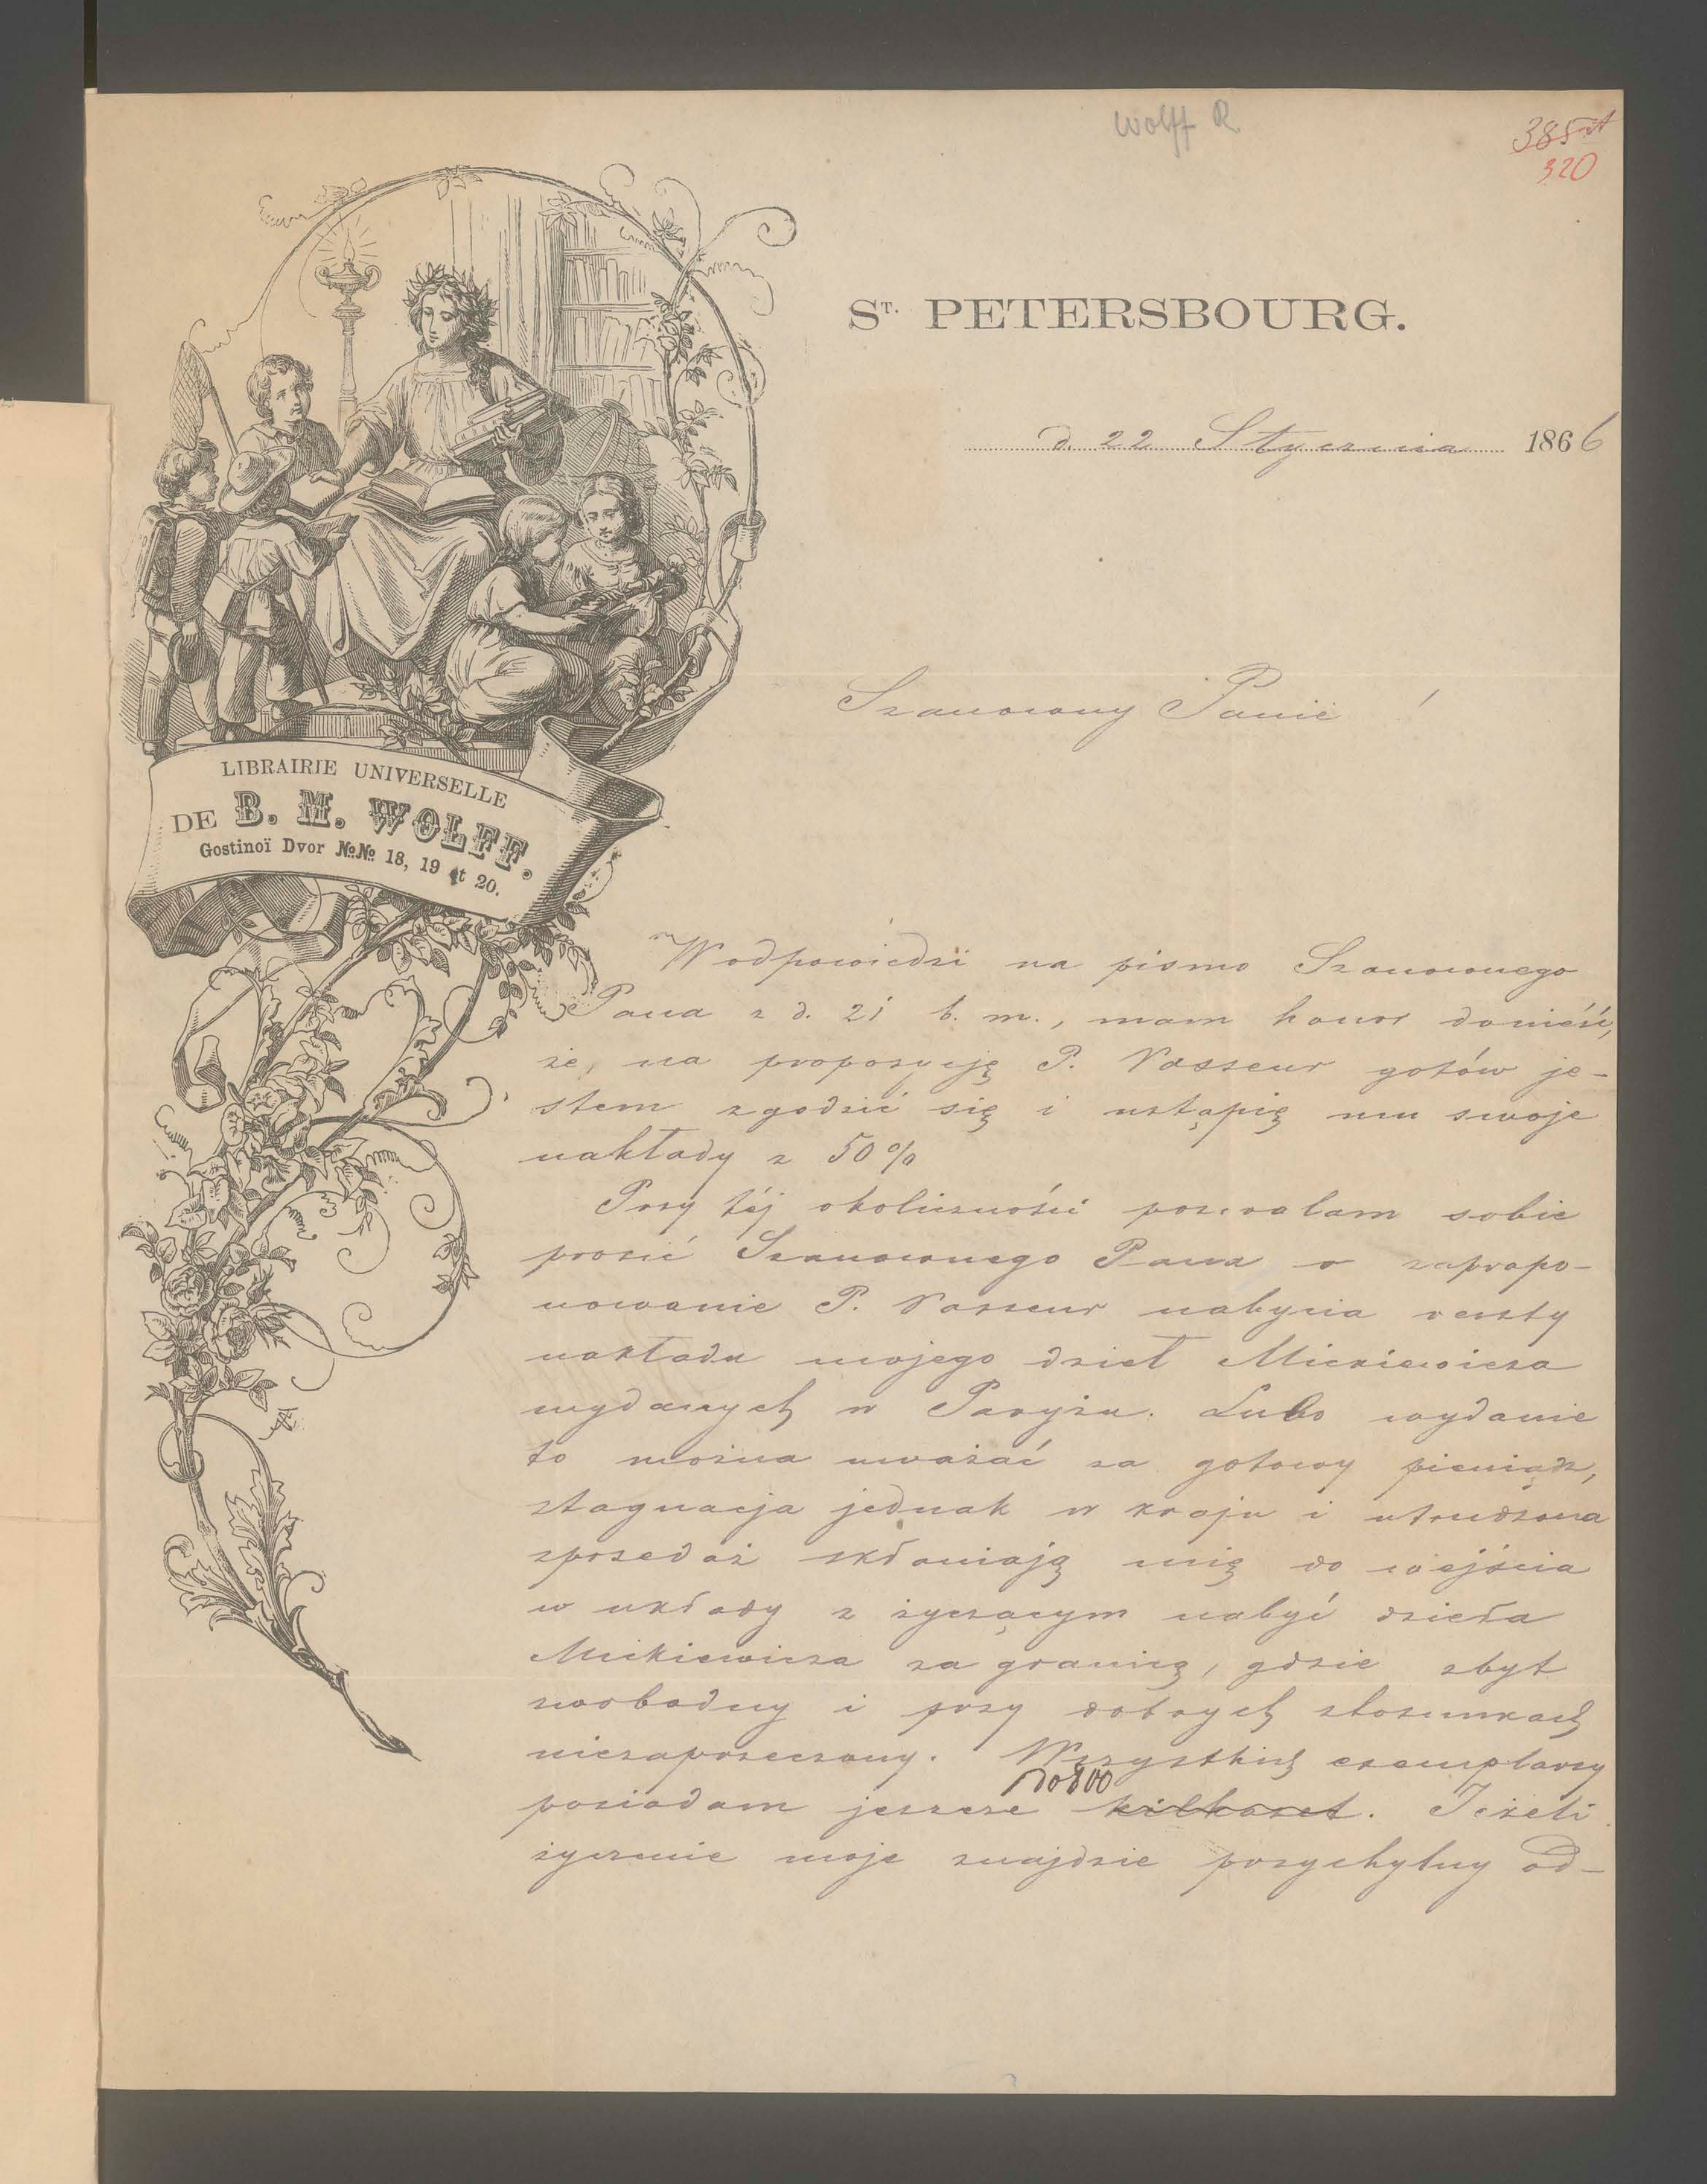 Wolff R.
385
320
ST. PETERSBOURG.
d. 22 Stycznia 1866
Szanowny Panie !
LIBRAIRIE UNIVERSELLE
DE B. M. WOLFF.
Gostinoï Dvor №№ 18, 19 et 20.
W odpowiedzi na pismo Szanownego
Pana z d. 21 b. m., mam honor donieść,
że, na propozycję P. Vasseur gotów je-
stem zgodzić się i ustąpię mu swoje
nakłady z 50%
Przy téj okoliczności pozwalam sobie
prosić Szanownego Pana o zapropo-
nowanie P. Vasseur nabycia reszty
nakładu mojego dzieł Mickiewicza
wydanych w Paryżu. Lubo wydanie
to można uważać za gotowy pieniądz,
stagnacja jednak w kraju i utrudzona
sprzedaż skłaniają mię do wejścia
w układy z życzącym nabyć dzieła
Mickiewicza za granicą, gdzie zbyt
swobodny i przy dobrych stosunkach
niezaprzeczony. Wszystkich exemplarzy
do 800
posiadam jeszcze kilkaset. Jeżeli
życzenie moje znajdzie przychylny od-